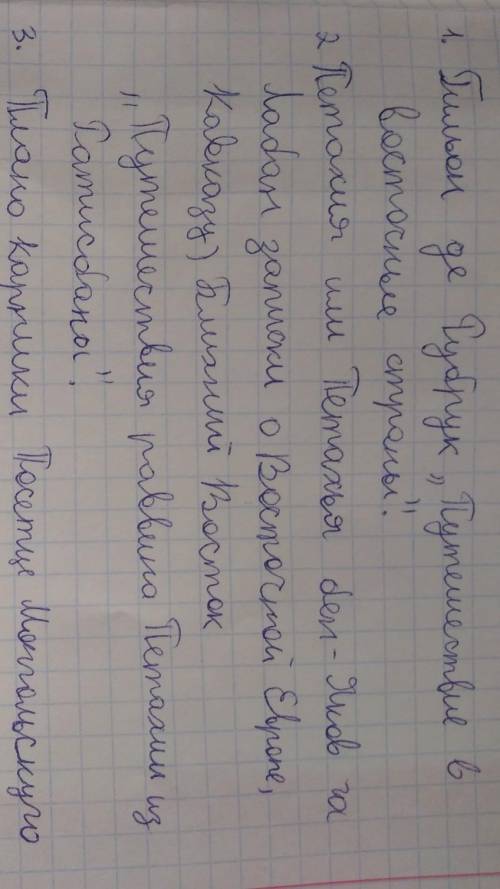 1. Гильом де Рубрук „Путешествие в
восточные страны".
2 Петахия или Петахья бен-Яков га
Лабан записки о Восточной Европе,
Кавказу) Ближний Восток
„Путешествия раввина Петахии из
Ратисбаны".
3. Плано Карпики Посетще Монгольскую